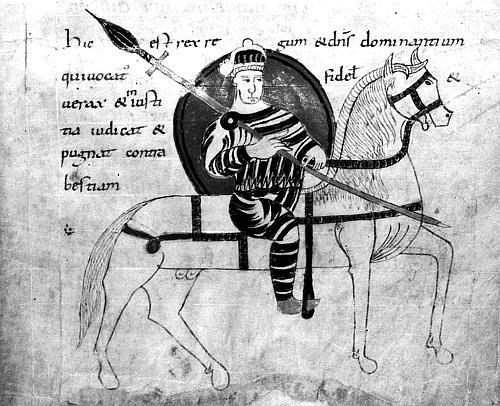 hic est rex re gum & dn̄s dominantium
quiuocat' fidel' &
uerax & in iusti
tia iudicat &
pugnat contra
bestiam